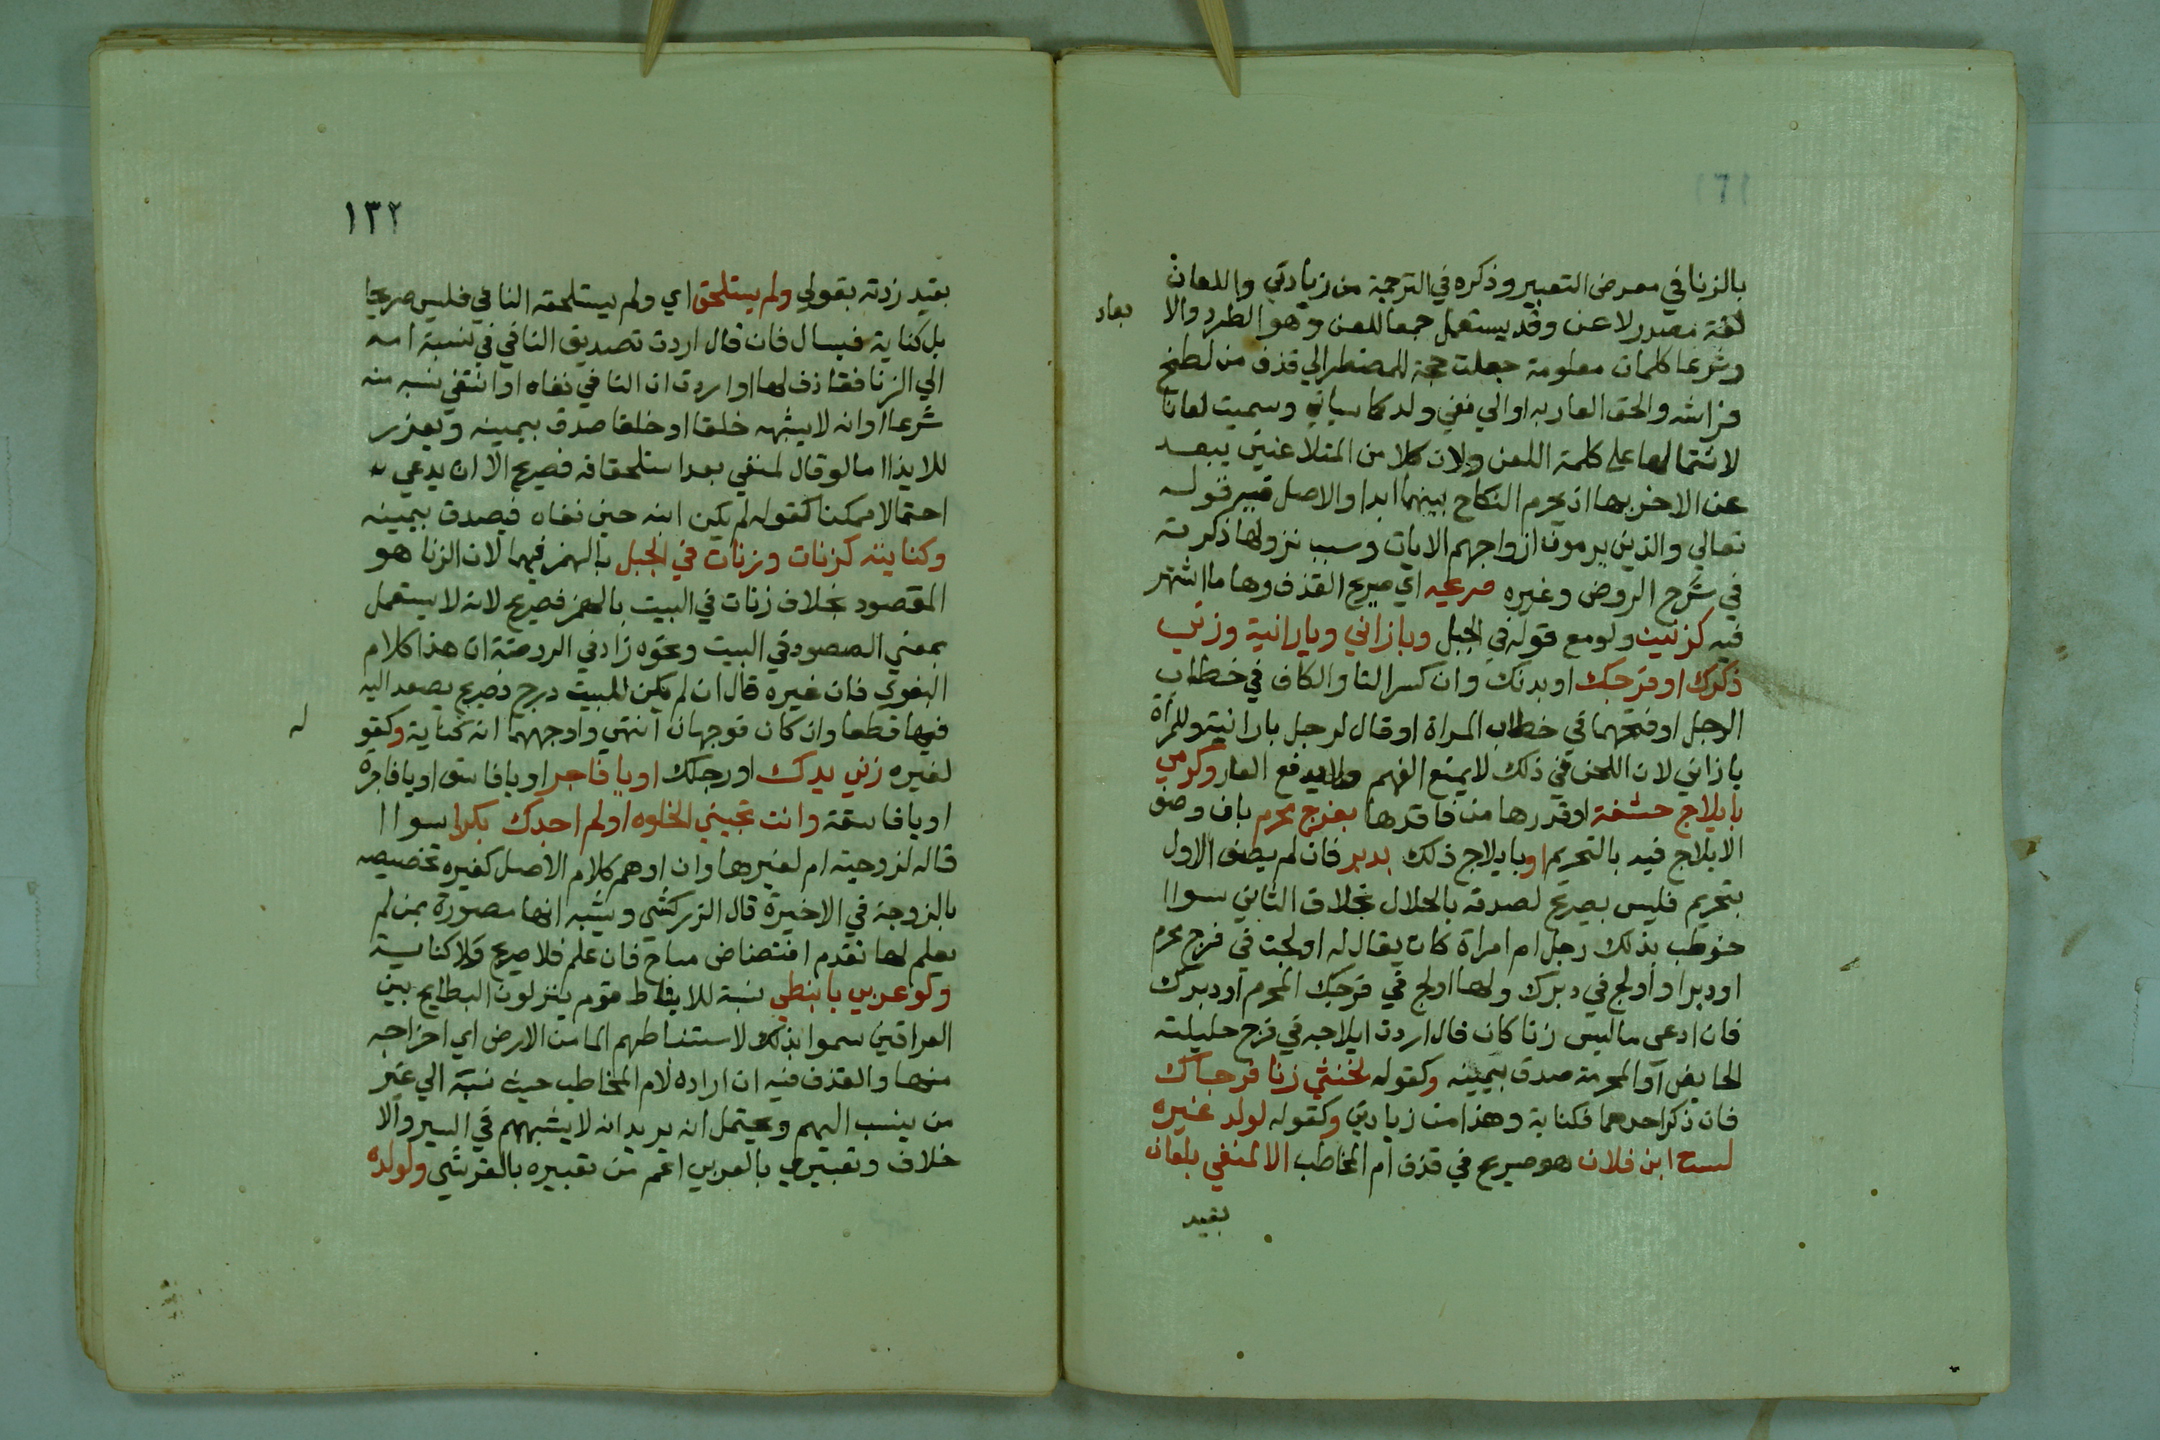 بالزنا في معرض التعيير وذكره في الترجمة من زيادتي واللعان
لغة مصدر لاعن وقد يستعمل جمعا للعن وهو الطرد والا
بعاد
وشرعا كلمات معلومة جعلت حجة للمضطر الي قذف من لطخ
فراشه والحق العار به او الي نفي ولد كما سياتي وسميت لعانا
لاشتمالها على كلمة اللعن ولان كلا من المتلاعنين يبعد
عن الاخر بها اذ يحرم النكاح بينهما ابدا والاصل فيه قوله
تعالي والذين يرمون ازواجهم الايات وسبب نزولها ذكرته
في شرح الروض وغيره صريحه اي صريح القذف وهو ما اشتهر
فيه كزنيت ولو مع قوله في الجبل ويا زاني ويا زانية وزني
ذكرك او فرجك او بدنك وان كسر التا والكاف في خطاب
الرجل او فتحهما في خطاب المراة او قال لرجل يا زانية وللمرأة
يا زاني لان اللحن في ذلك لا يمنع الفهم ولا يدفع العار وكرمي
بايلاج حشفة او قدرها من فاقدها بفرج محرم بان وصف
الايلاج فيه بالتحريم او بايلاج ذلك بدبر فان لم يصف الاول
بتحريم فليس بصريح لصدقه بالحلال بخلاف الثاني سواا
خوطب بذلك رجل ام امراة كان يقال له اولجت في فرج محرم
او دبر او اولج في دبرك ولها اولج في فرجك المحرم او دبرك
فان ادعى ما ليس زنا كان قال اردت ايلاجه في فرج حليلته
الحايض او المحرمة صدق بيمينه وكقوله لخنثي زنا فرجاك
فان ذكر احدهما فكناية وهذا من زيادتي وكقوله لولد غيره
لست ابن فلان هو صريح في قذف ام المخاطب الا لمنفي بلعان
بقيد
١٣٢
بقيد زدته بقولي ولم يستلحق اي ولم يستلحقه النافي فليس صريحا
بل كناية فيسال فان قال اردت تصديق النافي في نسبة امه
الي الزنا فقاذف لها او اردت ان النافي نفاه او انتفي نسبه منه
شرعا او انه لا يشبهه خلقا او خلقا صدق بيمينه ويعزر
للايذا اما لو قال لمنفي بعد استلحاقه فصريح الا ان يدعي
احتمالا ممكنا كقوله لم يكن ابنه حين نفاه فيصدق بيمينه
وكنايته كزنات وزنات في الجبل بالهمز فيهما لان الزنا هو
المقصود بخلاف زنات في البيت بالهمز فصريح لانه لا يستعمل
بمعني الصعود في البيت ونحوه زاد في الروضة ان هذا كلام
البغوي فان غيره قال ان لم يكن للبيت درج فصريح يصعد اليه
فيها قطعا وان كان فوجهان انتهي واوجههما انه كناية وكقو
له
لغيره زني يدك او رجلك او يا فاجر او يا فاسق او يا فاجرة
او يا فاسقة وانت تحبين الخلوة او لم اجدك بكرا سواا
قاله لزوجته ام لغيرها وان اوهم كلام الاصل كغيره تخصيصه
بالزوجة في الاخيرة قال الزركشي ويشبه انها مصورة بمن لم
يعلم لها تقدم افتضاض مباح فان علم فلا صريح ولا كناية
وكو لعربي يا نبطي نسبة للانباط قوم ينزلون البطايح بين
العراقين سموا بذلك لاستنباطهم الما من الارض اي اخراجه
منها والقذف فيه ان اراده لام المخاطب حيث نسبه الي غير
من ينسب اليهم ويحتمل ان يريد انه لا يشبههم في السير والا
خلاف وتعبيري بالعربي اعم من تعبيره بالقرشي ولولده